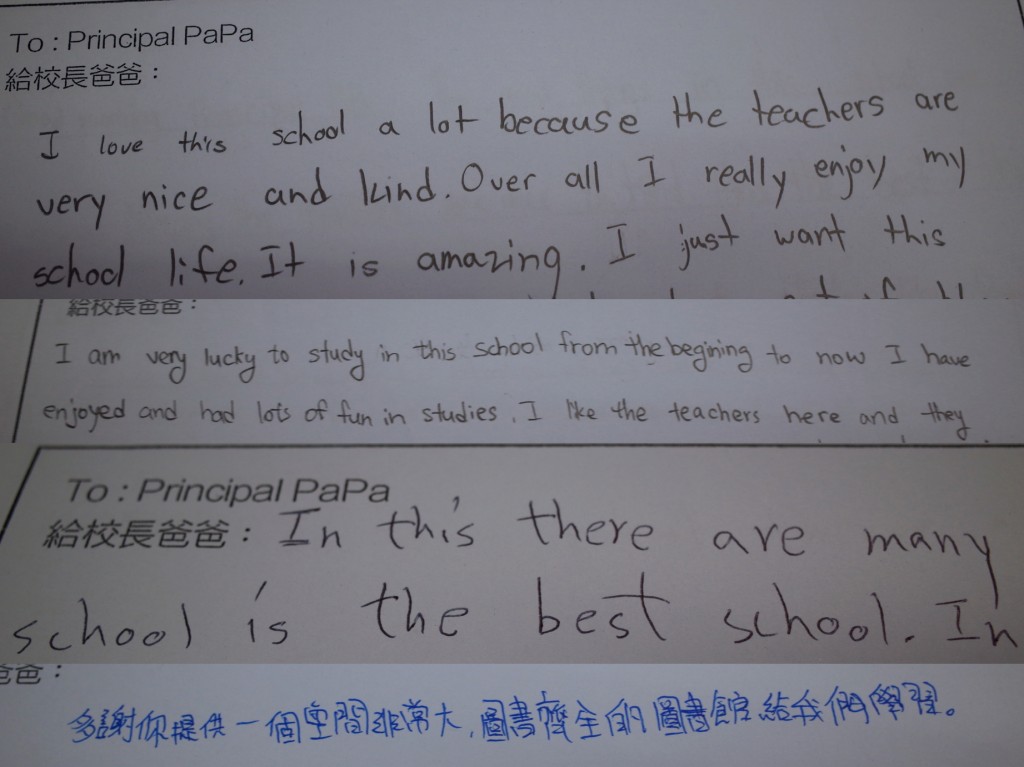 To : Principal PaPa
給校長爸爸：
I love this school a lot because the teachers are
very nice and kind. Over all I really enjoy my
school life. It is amazing. I just want this
給校長爸爸：
I am very lucky to study in this school from the begining to now I have
enjoyed and had lots of fun in studies. I like the teachers here and they
To : Principal PaPa
給校長爸爸： In this there are many
school is the best school. In
爸：
多謝你提供一個空間非常大，圖書齊全的圖書館給我們學習。